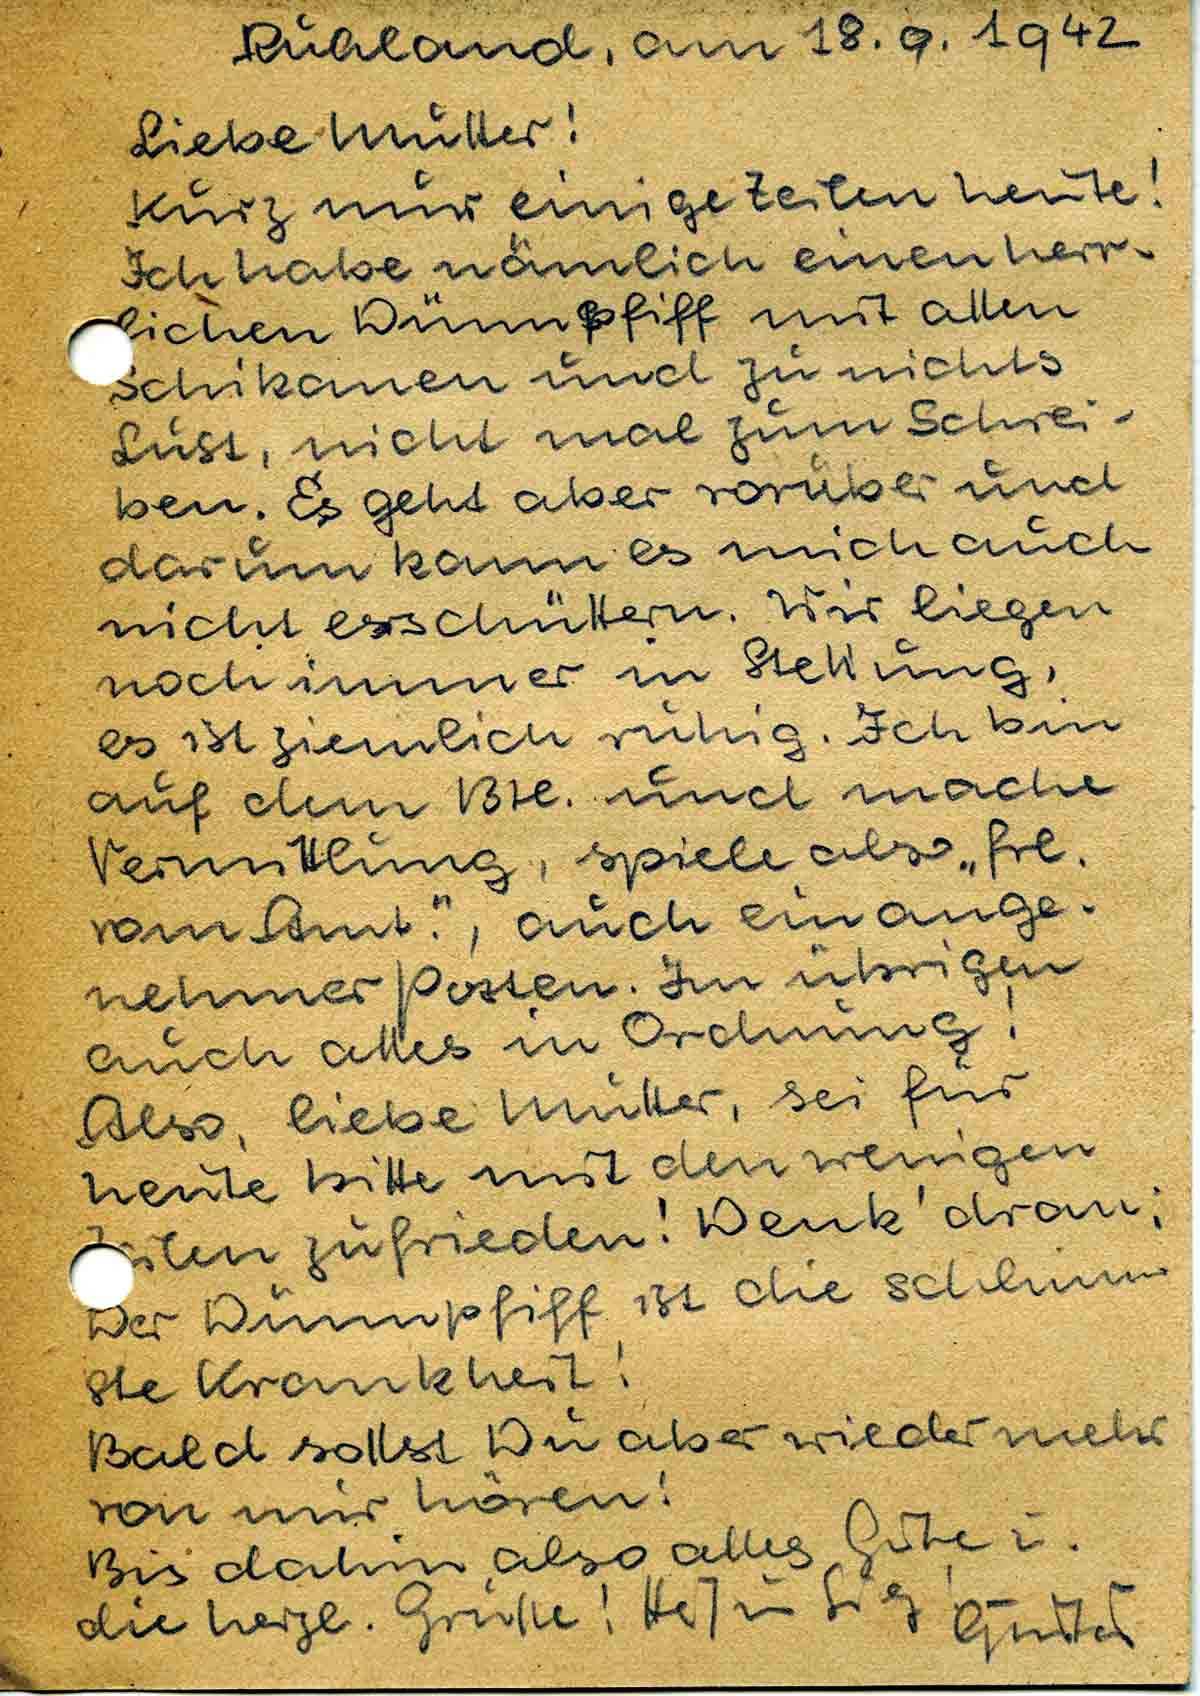 Rußland, am 18.9.1942
Liebe Mutter!
Kurz nur einige Zeilen heute!
Ich habe nämlich einen herr-
lichen Dünnpfiff mit allen
Schikanen und zu nichts
Lust, nicht mal zum Schrei-
ben. Es geht aber vorüber und
darum kann es mich auch
nicht erschüttern. Wir liegen
noch immer in Stellung,
es ist ziemlich ruhig. Ich bin
auf dem Btl. und mache
Vermittlung, spiele also „Frl.
vom Amt.", auch ein ange-
nehmer Posten. Im übrigen
auch alles in Ordnung!
Also, liebe Mutter, sei für
heute bitte mit den wenigen
Zeilen zufrieden! Denk' dran:
Der Dünnpfiff ist die schlimm-
ste Krankheit!
Bald sollst Du aber wieder mehr
von mir hören!
Bis dahin also alles Gute u.
die herzl. Grüße! Heil u. Sieg!